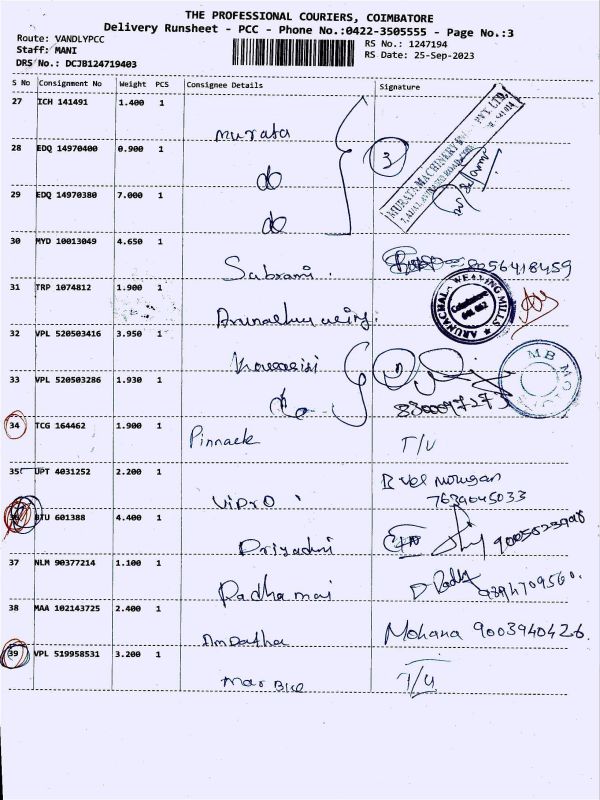 THE PROFESSIONAL COURIERS, COIMBATORE
Delivery Runsheet - PCC - Phone No.:0422-3505555 - Page No.:3
Route: VANDLYPCC
RS No.: 1247194
Staff: MANI
RS Date: 25-Sep-2023
DRS No.: DCJB124719403
S No Consignment No Weight PCS Consignee Details Signature
27 ICH 141491 1.400 1
Murata
28 EDQ 14970400 0.900 1
do
3
MURATA MACHINERY PVT. LTD.
29 EDQ 14970380 7.000 1
do
30 MYD 10013049 4.650 1
Sabrami. 8056418459
31 TRP 1074812 1.900 1
ARUNACHALA WEAVING MILLS
Coimbatore
32 VPL 520503416 3.950 1
MB
33 VPL 520503286 1.930 1
do
34 TCG 164462 1.900 1
Pinnack T/U
35 UPT 4031252 2.200 1
R vel murugan
7639045033
VIPRO
36 BTU 601388 4.400 1
Priyadni
37 NLM 90377214 1.100 1
Padhamai
38 MAA 102143725 2.400 1
Mohana 9003940426.
39 VPL 519958531 3.200 1
T/U